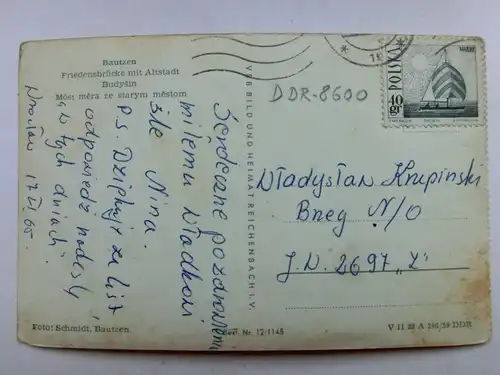 Bautzen
Friedensbrücke mit Altstadt
Budyšin
Móst měra ze starym městom
Wrocław 17 VI 65.
Serdeczne pozdrowienia
miłemu Władkowi
śle Nina.
P.S. Dziękuję za list
odpowiedź nadeślę
w tych dniach
Foto: Schmidt, Bautzen
VEB BILD UND HEIMAT REICHENBACH I. V.
Best. Nr. 12/1145
DDR-8600
POLSKA
40
gr
Władysław Krupiński
Brzeg N/O
J.W. 2697 „Z”
V 11 28 A 286/59 DDR